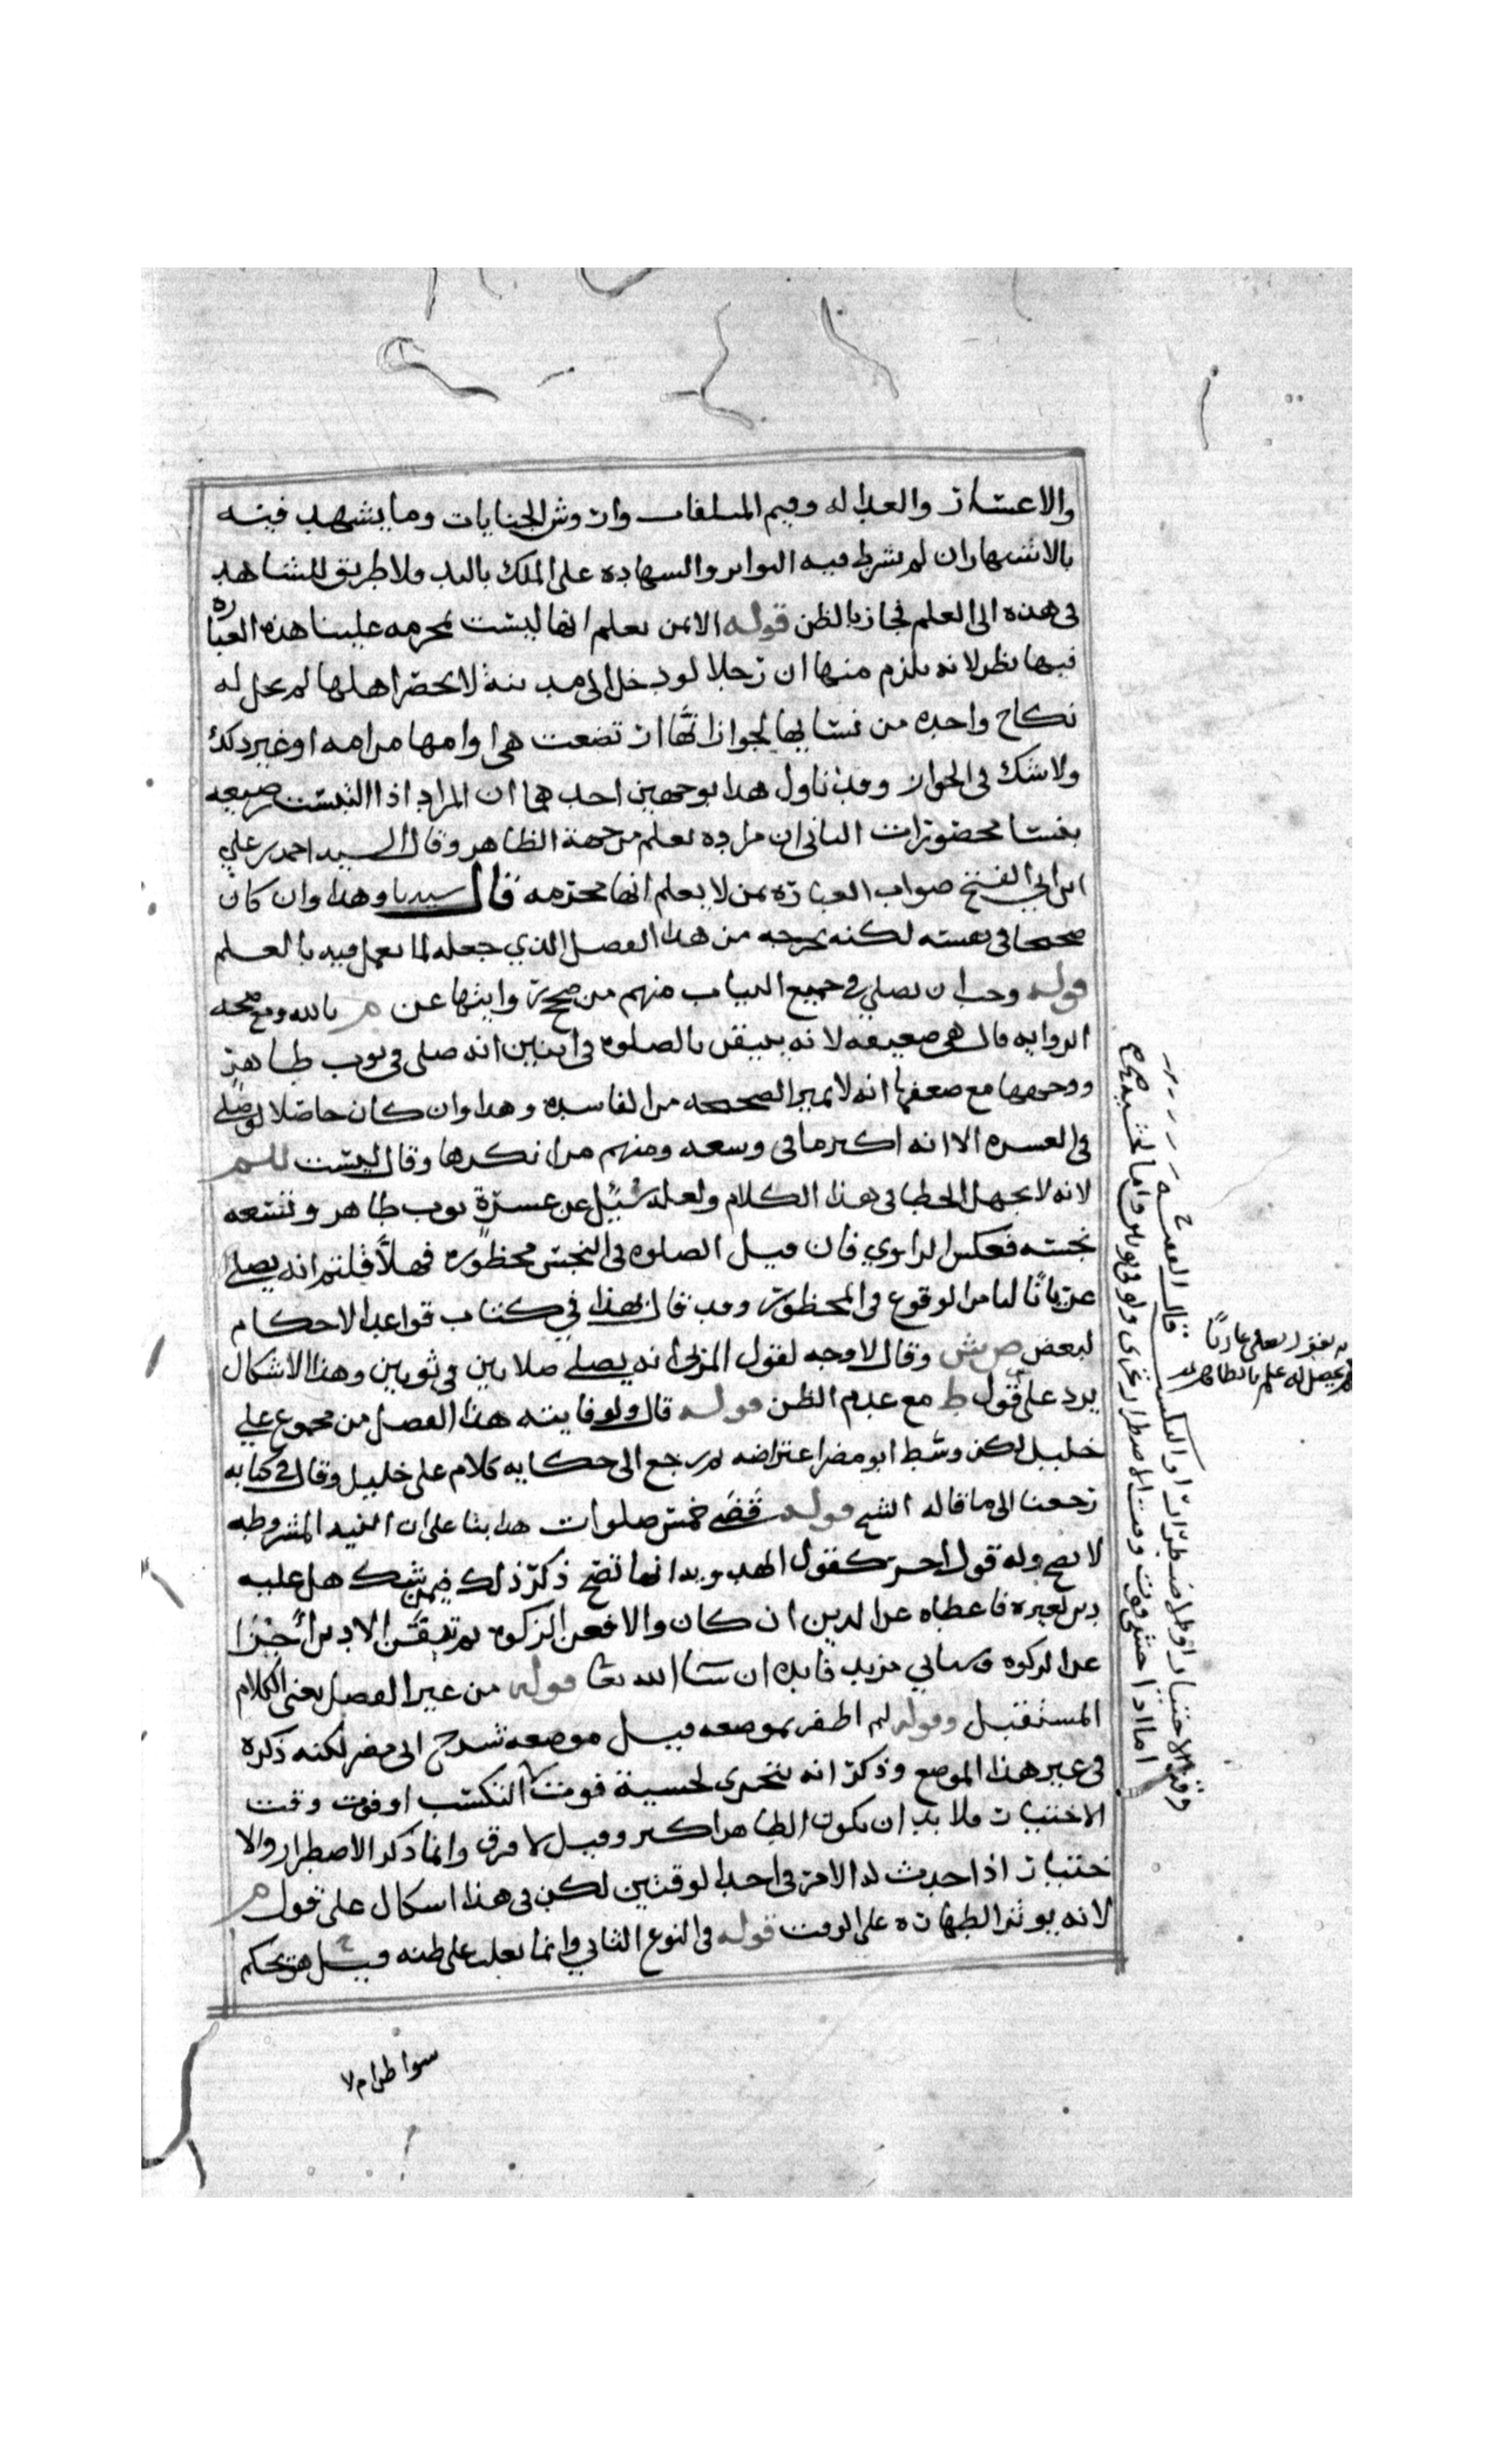 والاعسار والعداله وقيم المتلفات واروش الجنايات وما يشهد فيه
بالاشتهار ان لم يشرط فيه التواتر والشهادة على الملك باليد ولا طريق للشاهد
في هذه الى العلم فجاز بالظن قوله الا من يعلم انها ليست بمحرمه علينا هذه العبارة
فيها نظر لانه يلزم منها ان رجلا لو دخل الى مدينة لا يحصر اهلها لم يحل له
نكاح واحده من نسايها لجواز انها ارتضعت هي وامها من امه او غير ذلك
ولا شك في الجواز وقد تاول هذا بوجهين احدهما ان المراد اذا التبست رضيعه
بنسا محصورات الثاني ان مراده يعلم من جهة الظاهر وقال السيد احمد بن علي
ابن ابي الفتح صواب العبارة بمن لا يعلم انها محرمه قال سيدنا وهذا وان كان
صحيحا في نفسه لكنه يخرجه من هذا الفصل الذي جعله لما يعمل فيه بالعلم
قوله وجب ان يصلي في جميع الثياب منهم من صحح وابثها عن م بالله ومع صحه
الروايه قال هي ضعيفه لانه يتيقن بالصلوه في اثنين انه صلى في ثوب طاهر
ووجهها مع ضعفها انه لا يميز الصحيحه من الفاسده وهذا وان كان حاصلا لو صلى
في العسره الا انه اكبر ما في وسعه ومنهم من انكرها وقال ليست للم
لانه لا يجهل الخطا في هذا الكلام ولعله سئل عن عسرة ثوب طاهر وتسعه
نجسه فعكس الراوي فان قيل الصلوه في النجس محظوره فهلا قلتم انه يصلي
عريانا ليامن الوقوع في المحظور وقد قال بهذا في كتاب قواعد الاحكام
لبعض ص ش وقال لا وجه لقول المزني انه يصلي صلاتين في ثوبين وهذا الاشكال
يرد على قول ط مع عدم الظن قوله قال ولوقايته هذا الفصل من مجموع علي
خليل لكن وسط ابو مضر اعتراضه ثم رجع الى حكايه كلام علي خليل وقال في كتابه
رجعنا الى ما قاله الشيخ قوله قضى خمس صلوات هذا بنا على ان النيه المشروطه
لا تصح وله قول اخر كقول الهدويه انها تصح ذكر ذلك فيمن شك هل عليه
دين لغيره فاعطاه عن الدين ان كان والا فعن الزكوه ثم تيقن الا دين اجزا
عن الزكوه وسياتي مزيد فايده ان شا الله تعا قوله من غير الفصل يعني الكلام
المستقبل وقوله لم اظفر بموضعه قيل موضعه شرح ابي مضر لكنه ذكره
في غير هذا الموضع وذكر انه يتحرى لخشية فوت التكسب او فوت وقت
الاختيار فلا بد ان يكون الطاهر اكثر وقيل لا فرق وانما ذكر الاضطرار والا
ختيار اذا حدث له الامر في احد الوقتين لكن في هذا اشكال على قول م
لانه يوثر الطهارة على الوقت قوله في النوع الثاني وانما يغلب على ظنه قيل هو يحكم
سوا طرام لا
قال الفقيه